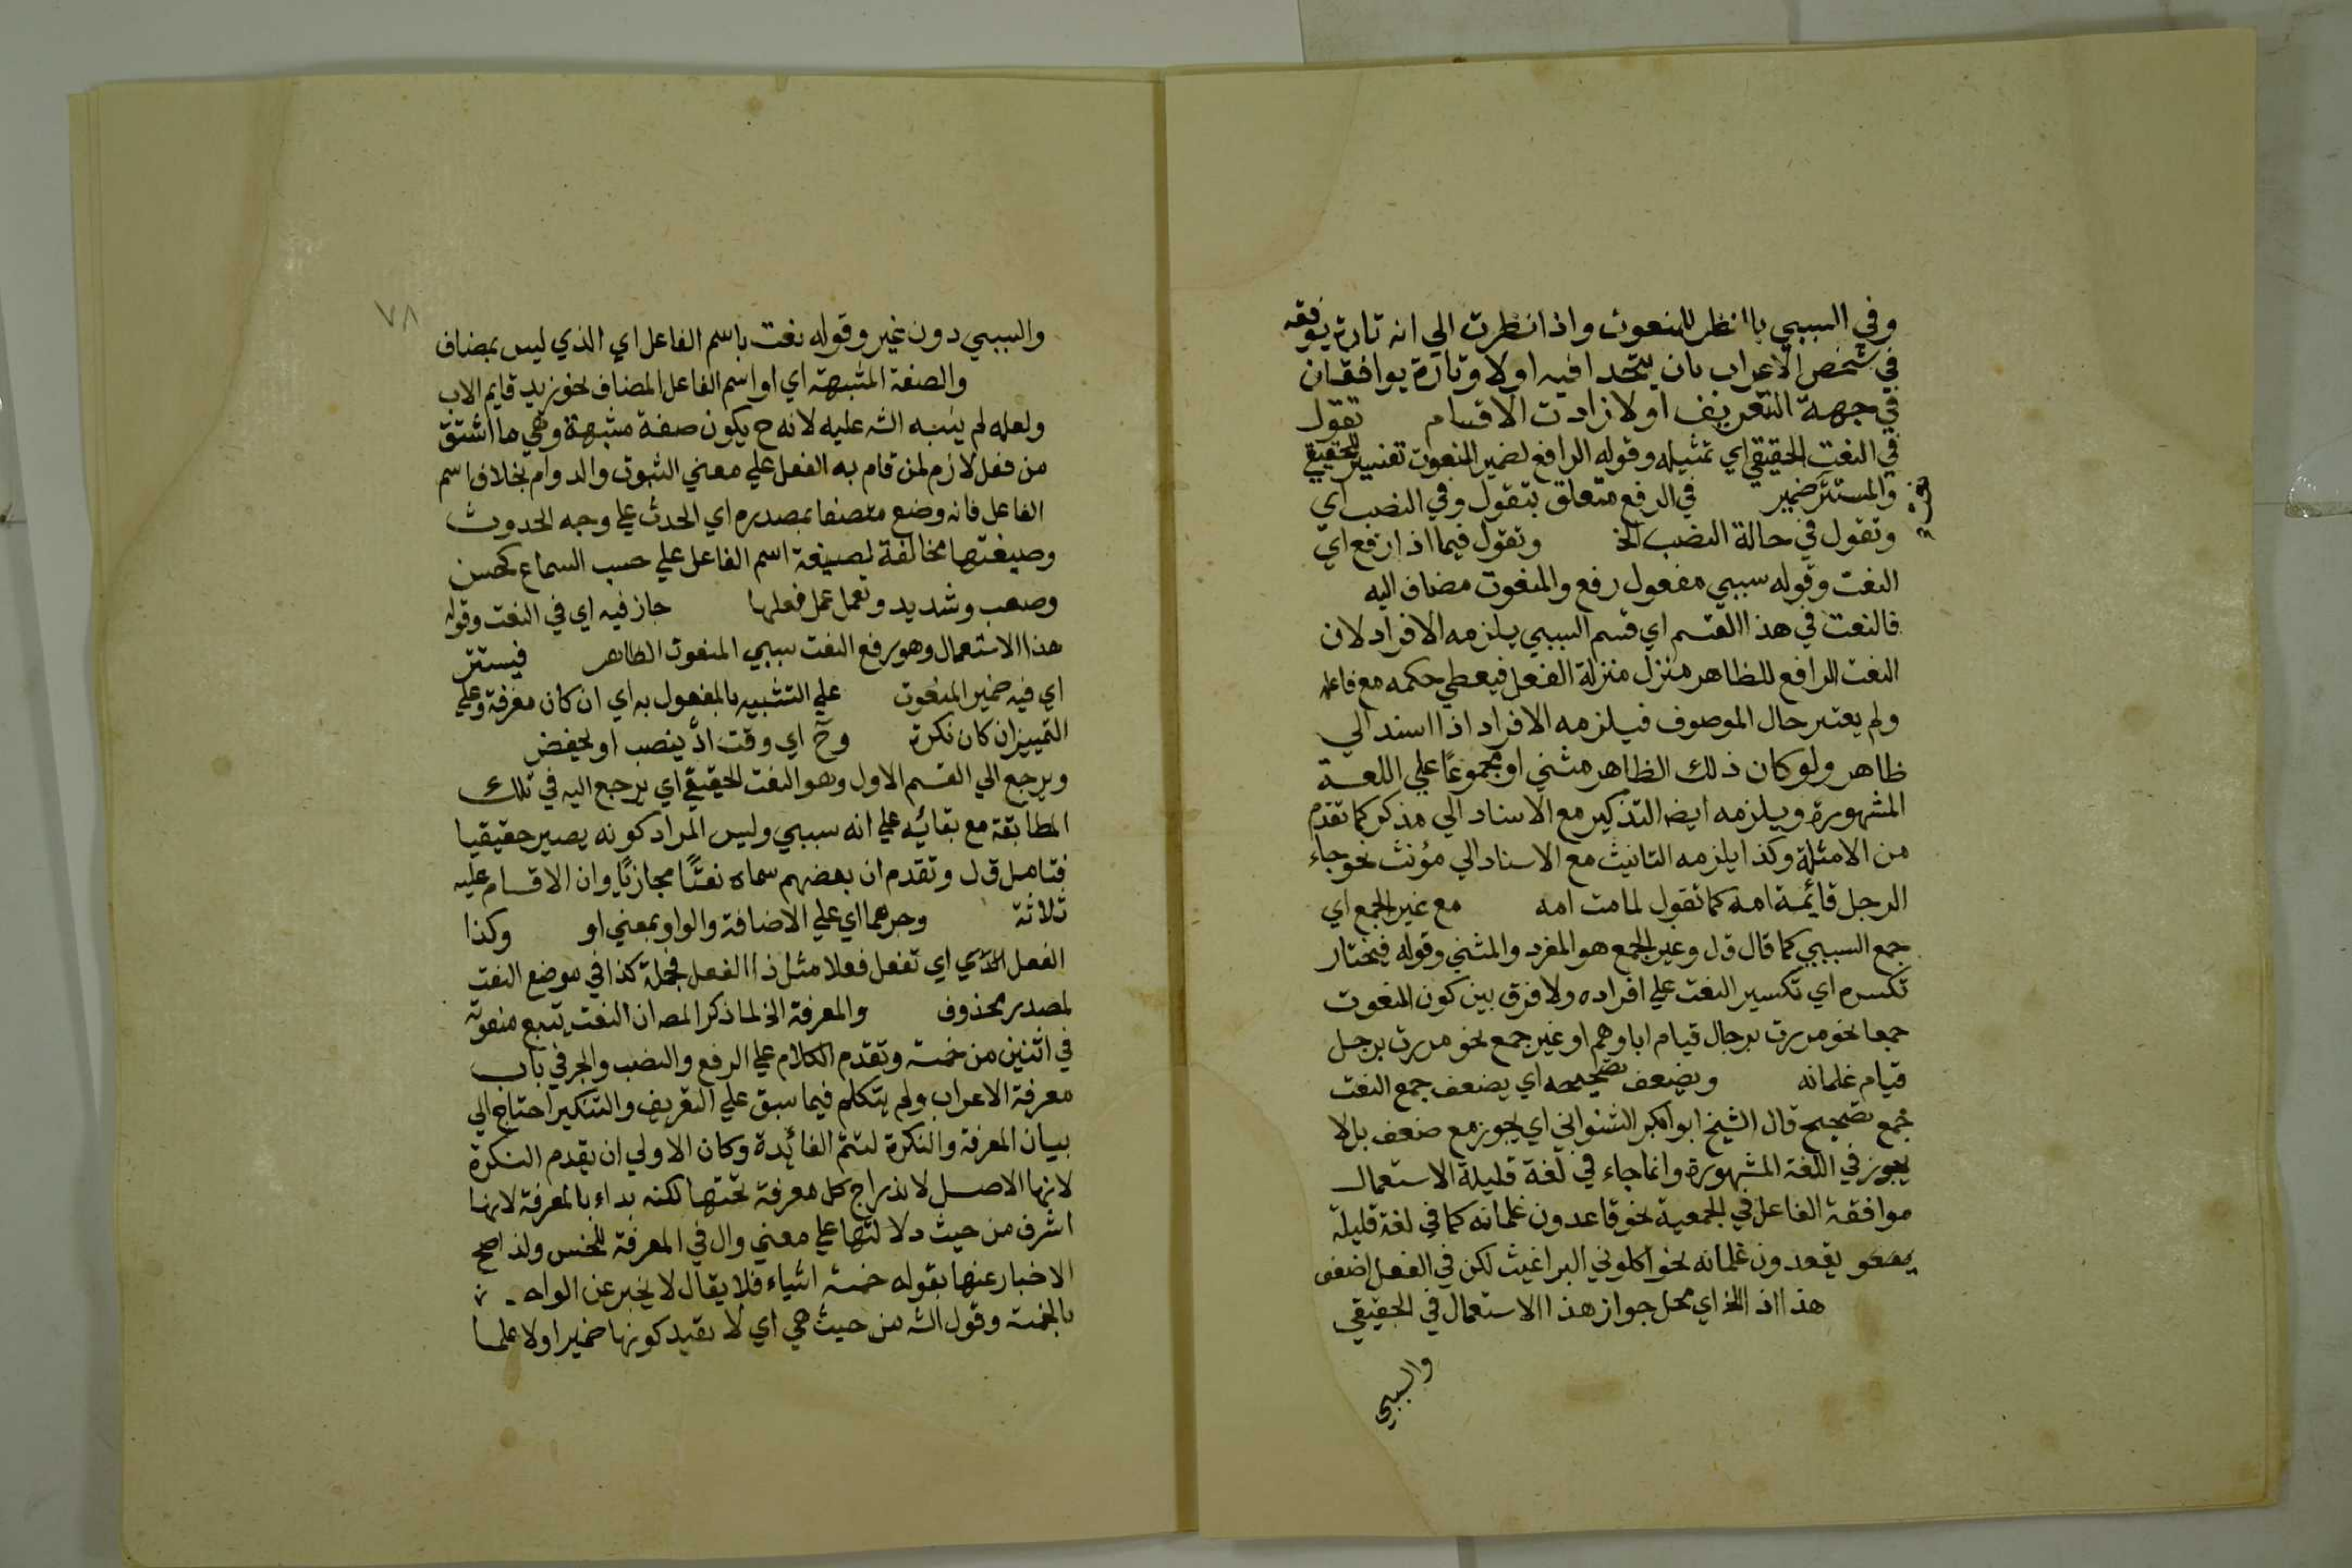 وفي السببي بالنظر للمنعوت واذا نظرت الي انه تارة يوافقه
في شخص الاعراب بان يتحدا فيه اولا وتارة يوافقان
في جهة التعريف اولا زادت الاقسام تقول
في النعت الحقيقي اي تمثيله وقوله الرافع لضمير المنعوت تفسير للحقيقي
والمستتر ضمير في الرفع متعلق بتقول وفي النصب اي
وتقول في حالة النصب الخ وتقول فيما اذا رفع اي
النعت وقوله سببي مفعول رفع والمنعوت مضاف اليه
فالنعت في هذا القسم اي قسم السببي يلزمه الافراد لان
النعت الرافع للظاهر منزل منزلة الفعل فيعطي حكمه مع فاعله
ولم يعتبر حال الموصوف فيلزمه الافراد اذا اسند الي
ظاهر ولو كان ذلك الظاهر مثني او مجموعًا علي اللغة
المشهورة ويلزمه ايضا التذكير مع الاسناد الي مذكر كما تقدم
من الامثلة وكذا يلزمه التانيث مع الاسناد الي مؤنث نحو جاء
الرجل قائمة امه كما تقول لمامت امه مع غير الجمع اي
جمع السببي كما قال ق ل وغير الجمع هو المفرد والمثني وقوله فيختار
تكسره اي تكسير النعت علي افراده ولا فرق بين كون المنعوت
جمعا نحو مررت برجال قيام اباوهم او غير جمع نحو مررت برجل
قيام غلمانه ويضعف تصحيحه اي يضعف جمع النعت
جمع تصحيح قال الشيخ ابو بكر الشنواني اي يجوز مع ضعف بالا
يجوز في اللغة المشهورة وانما جاء في لغة قليلة الاستعمال
موافقة الفاعل في الجمعية نحو قاعدون غلمانه كما في لغة قليلة
يقعدون غلمانه نحو اكلوني البراغيث لكن في الفعل اضعف
هذا اذا الخ اي محل جواز هذا الاستعمال في الحقيقي
والسببي
٧٨
والسببي دون غير وقوله نعت باسم الفاعل اي الذي ليس بمضاف
والصفة المشبهة اي او اسم الفاعل المضاف نحو زيد قايم الاب
ولعله لم ينبه الشه عليه لانه ح يكون صفة مشبهة وهي ما اشتق
من فعل لازم لمن قام به الفعل علي معني الثبوت والدوام بخلاف اسم
الفاعل فانه وضع متصفا بمصدره اي الحدث علي وجه الحدوث
وصيغتها مخالفة لصيغة اسم الفاعل علي حسب السماع كحسن
وصعب وشديد وتعمل عمل فعلها جاز فيه اي في النعت وقوله
هذا الاستعمال وهو رفع النعت سببي المنعوت الظاهر فيستتر
اي فيه ضمير المنعوت علي التشبيه بالمفعول به اي ان كان معرفة وعلي
التمييز ان كان نكرة وح اي وقت اذ ينصب او يخفض
ويرجع الي القسم الاول وهو النعت الحقيقي اي يرجع اليه في تلك
المطابقة مع بقائه علي انه سببي وليس المراد كونه يصير حقيقيا
فتامل ق ل وتقدم ان بعضهم سماه نعتًا مجازيًا وان الاقسام عليه
ثلاثة وجرهما اي علي الاضافة والواو بمعني او وكذا
الفعل الذي اي تفعل فعلا مثل ذا الفعل فجملة كذا في موضع النعت
لمصدر محذوف والمعرفة الخ لما ذكر المصه ان النعت يتبع منعوته
في اثنين من خمسة وتقدم الكلام علي الرفع والنصب والجر في باب
معرفة الاعراب ولم يتكلم فيما سبق علي التعريف والتنكير احتاج الي
بيان المعرفة والنكرة لتتم الفائدة وكان الاولي ان يقدم النكرة
لانها الاصل لاندراج كل معرفة تحتها لكنه بداء بالمعرفة لانها
اشرف من حيث دلالتها علي معني وال في المعرفة للجنس ولذا صح
الاخبار عنها بقوله خمسة اشياء فلا يقال لا يخبر عن الواحد
بالخمسة وقول الشه من حيث هي اي لا بقيد كونها ضميرا ولا علما